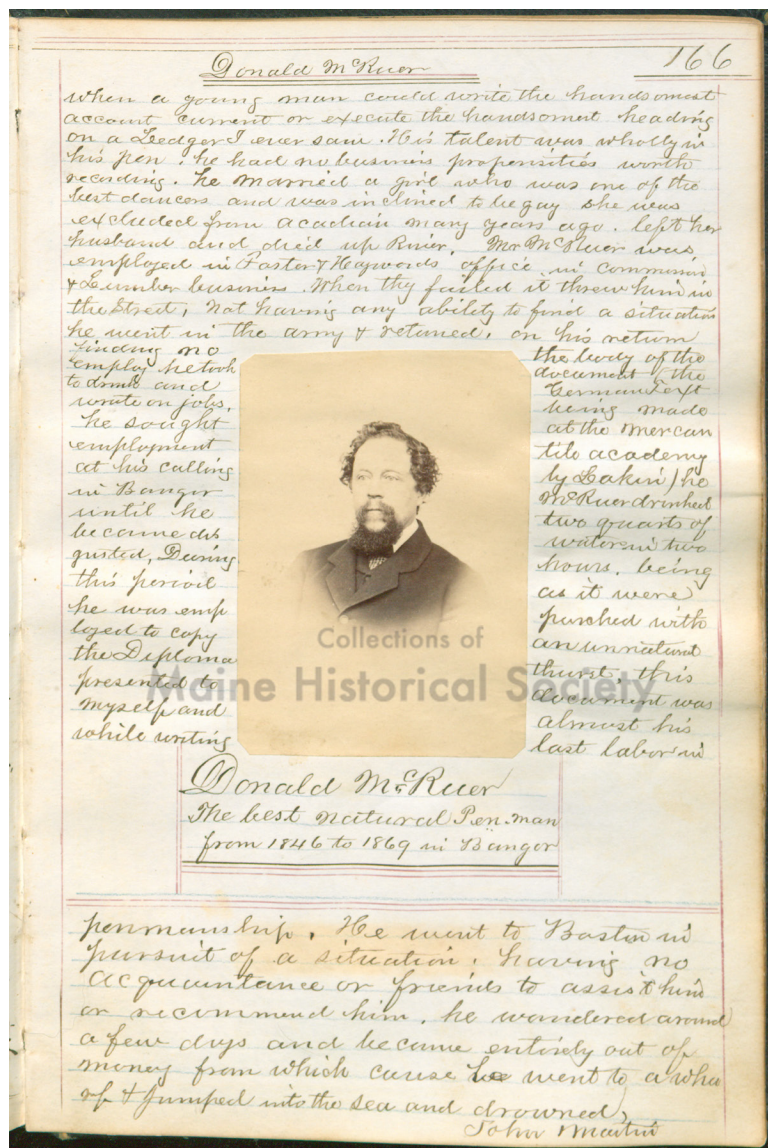 Donald McRuer
166
when a young man could write the handsomest
account current or execute the handsomest heading
on a Ledger I ever saw. His talent was wholly in
his pen, he had no business propensities worth
recording. he married a girl who was one of the
best dancers and was inclined to be gay she was
excluded from acadian many years ago. left her
husband and died up River, Mr McRuer was
employed in Foster & Haywords office in commision
& Lumber business. When thy failed it threw him in
the Street, not having any ability to find a situation
he went in the army & retuned, on his return
finding no
employ he took
to drink and
wrote on jobs,
he sought
employment
at his calling
in Bangor
until he
became dis
gusted, During
this period
he was emp
loyed to copy
the Diploma
presented to
myself and
while writing
the body of the
document (the
German Text
being made
at the mercan
tile academy
by Eakin) he
McRuer drinked
two quarts of
water in two
hours. being
as it were
parched with
an unnatural
thirst, this
document was
almost his
last labor in
Collections of
Maine Historical Society
Donald McRuer
The best natural Pen-man
from 1846 to 1869 in Bangor
penmanship. He went to Boston in
pursuit of a situation, having no
acquaintance or friends to assist him
or recommend him. he wandered around
a few days and became entirely out of
money from which cause he went to a wha
rf & jumped into the sea and drowned,
John Martin